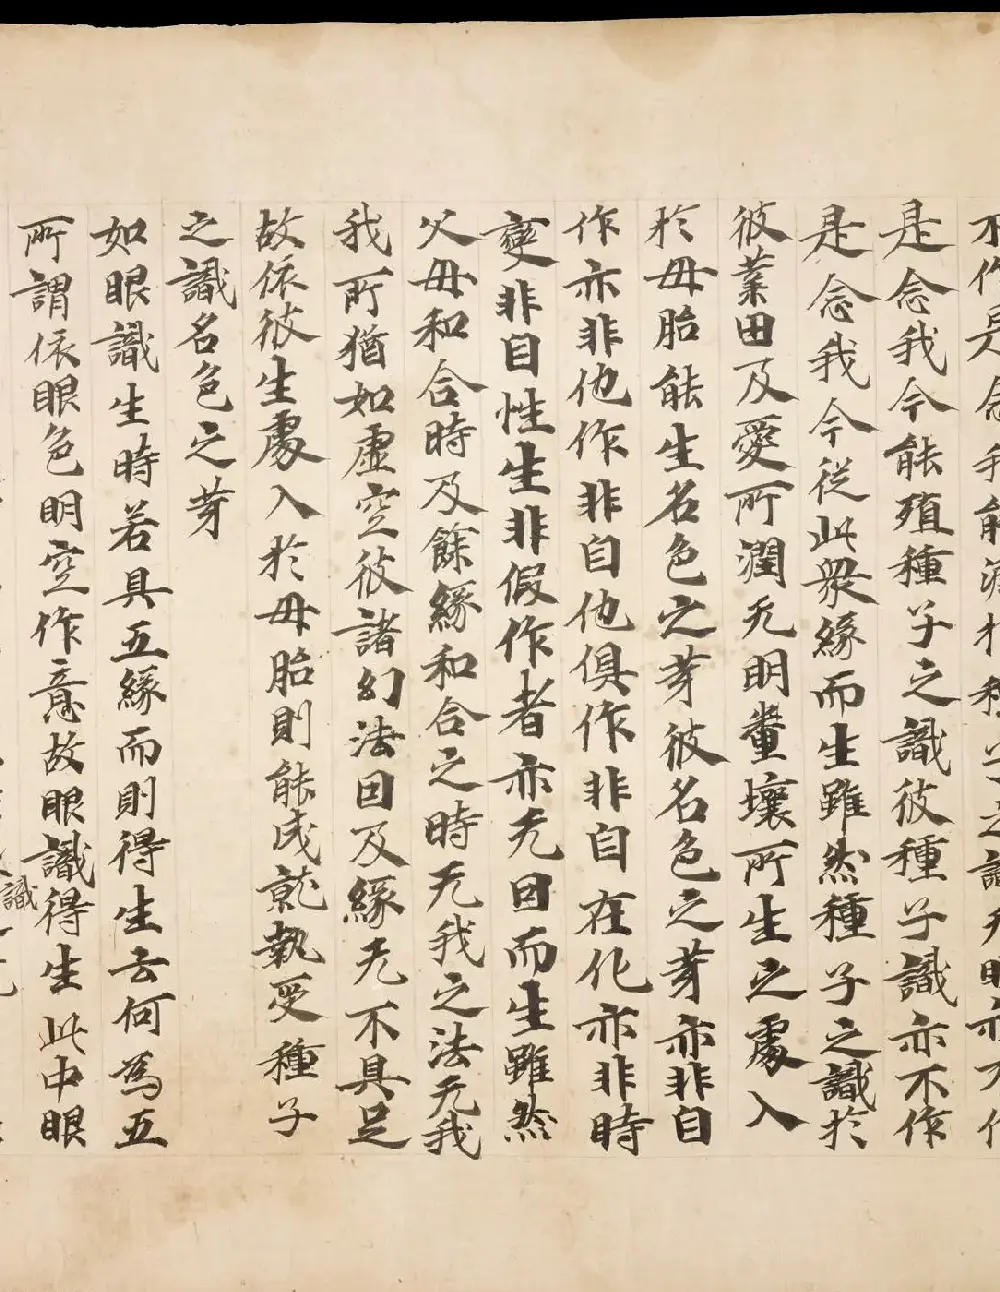 不作是念我能溉於種子之識无明亦不作
是念我今能殖種子之識彼種子識亦不作
是念我今從此衆緣而生雖然種子之識於
彼業田及愛所潤无明糞壤所生之處入
於母胎能生名色之芽彼名色之芽亦非自
作亦非他作非自他俱作非自在化亦非時
變非自性生非假作者亦无因而生雖然
父母和合時及餘緣和合之時无我之法无我
我所猶如虛空彼諸幻法因及緣无不具足
故依彼生處入於母胎則能成就執受種子
之識名色之芽
如眼識生時若具五緣而則得生云何為五
所謂依眼色明空作意故眼識得生此中眼
識